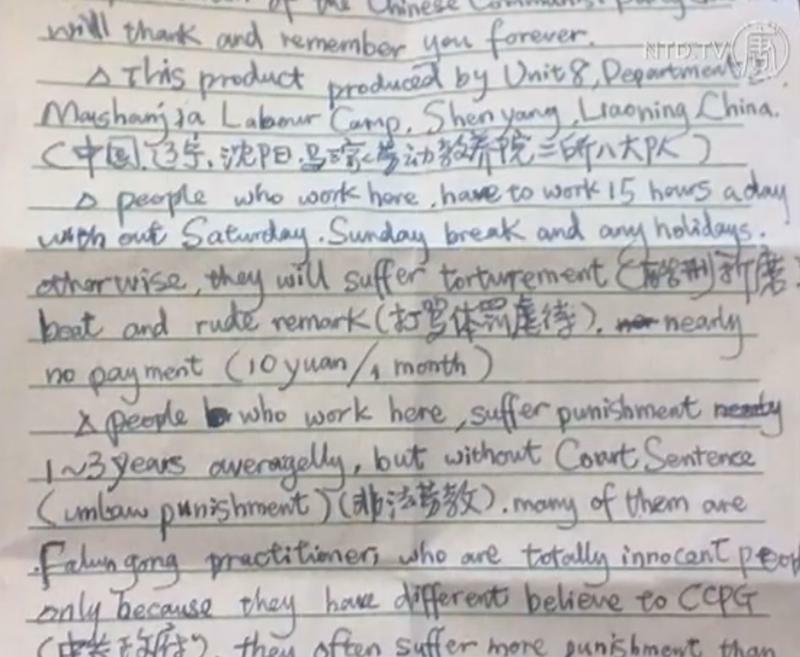 of the Chinese Communist Party
will thank and remember you forever.
NTD.TV
△ This product produced by Unit 8, Department
Mashanjia Labour Camp, Shenyang, Liaoning China.
(中国,辽宁,沈阳,马三家劳动教养院二所八大队)
△ people who work here, have to work 15 hours a day
with out Saturday, Sunday break and any holidays.
otherwise, they will suffer torturement ( 折磨
beat and rude remark (打骂体罚虐待). nearly
no payment (10 yuan/1 month)
△ people who work here, suffer punishment nearly
1~3 years averagelly, but without Court Sentence
(unlaw punishment) (非法劳教). many of them are
Falun gong practitioner, who are totally innocent peop
only because they have different believe to CCPG
(中共政府), they often suffer more punishment than